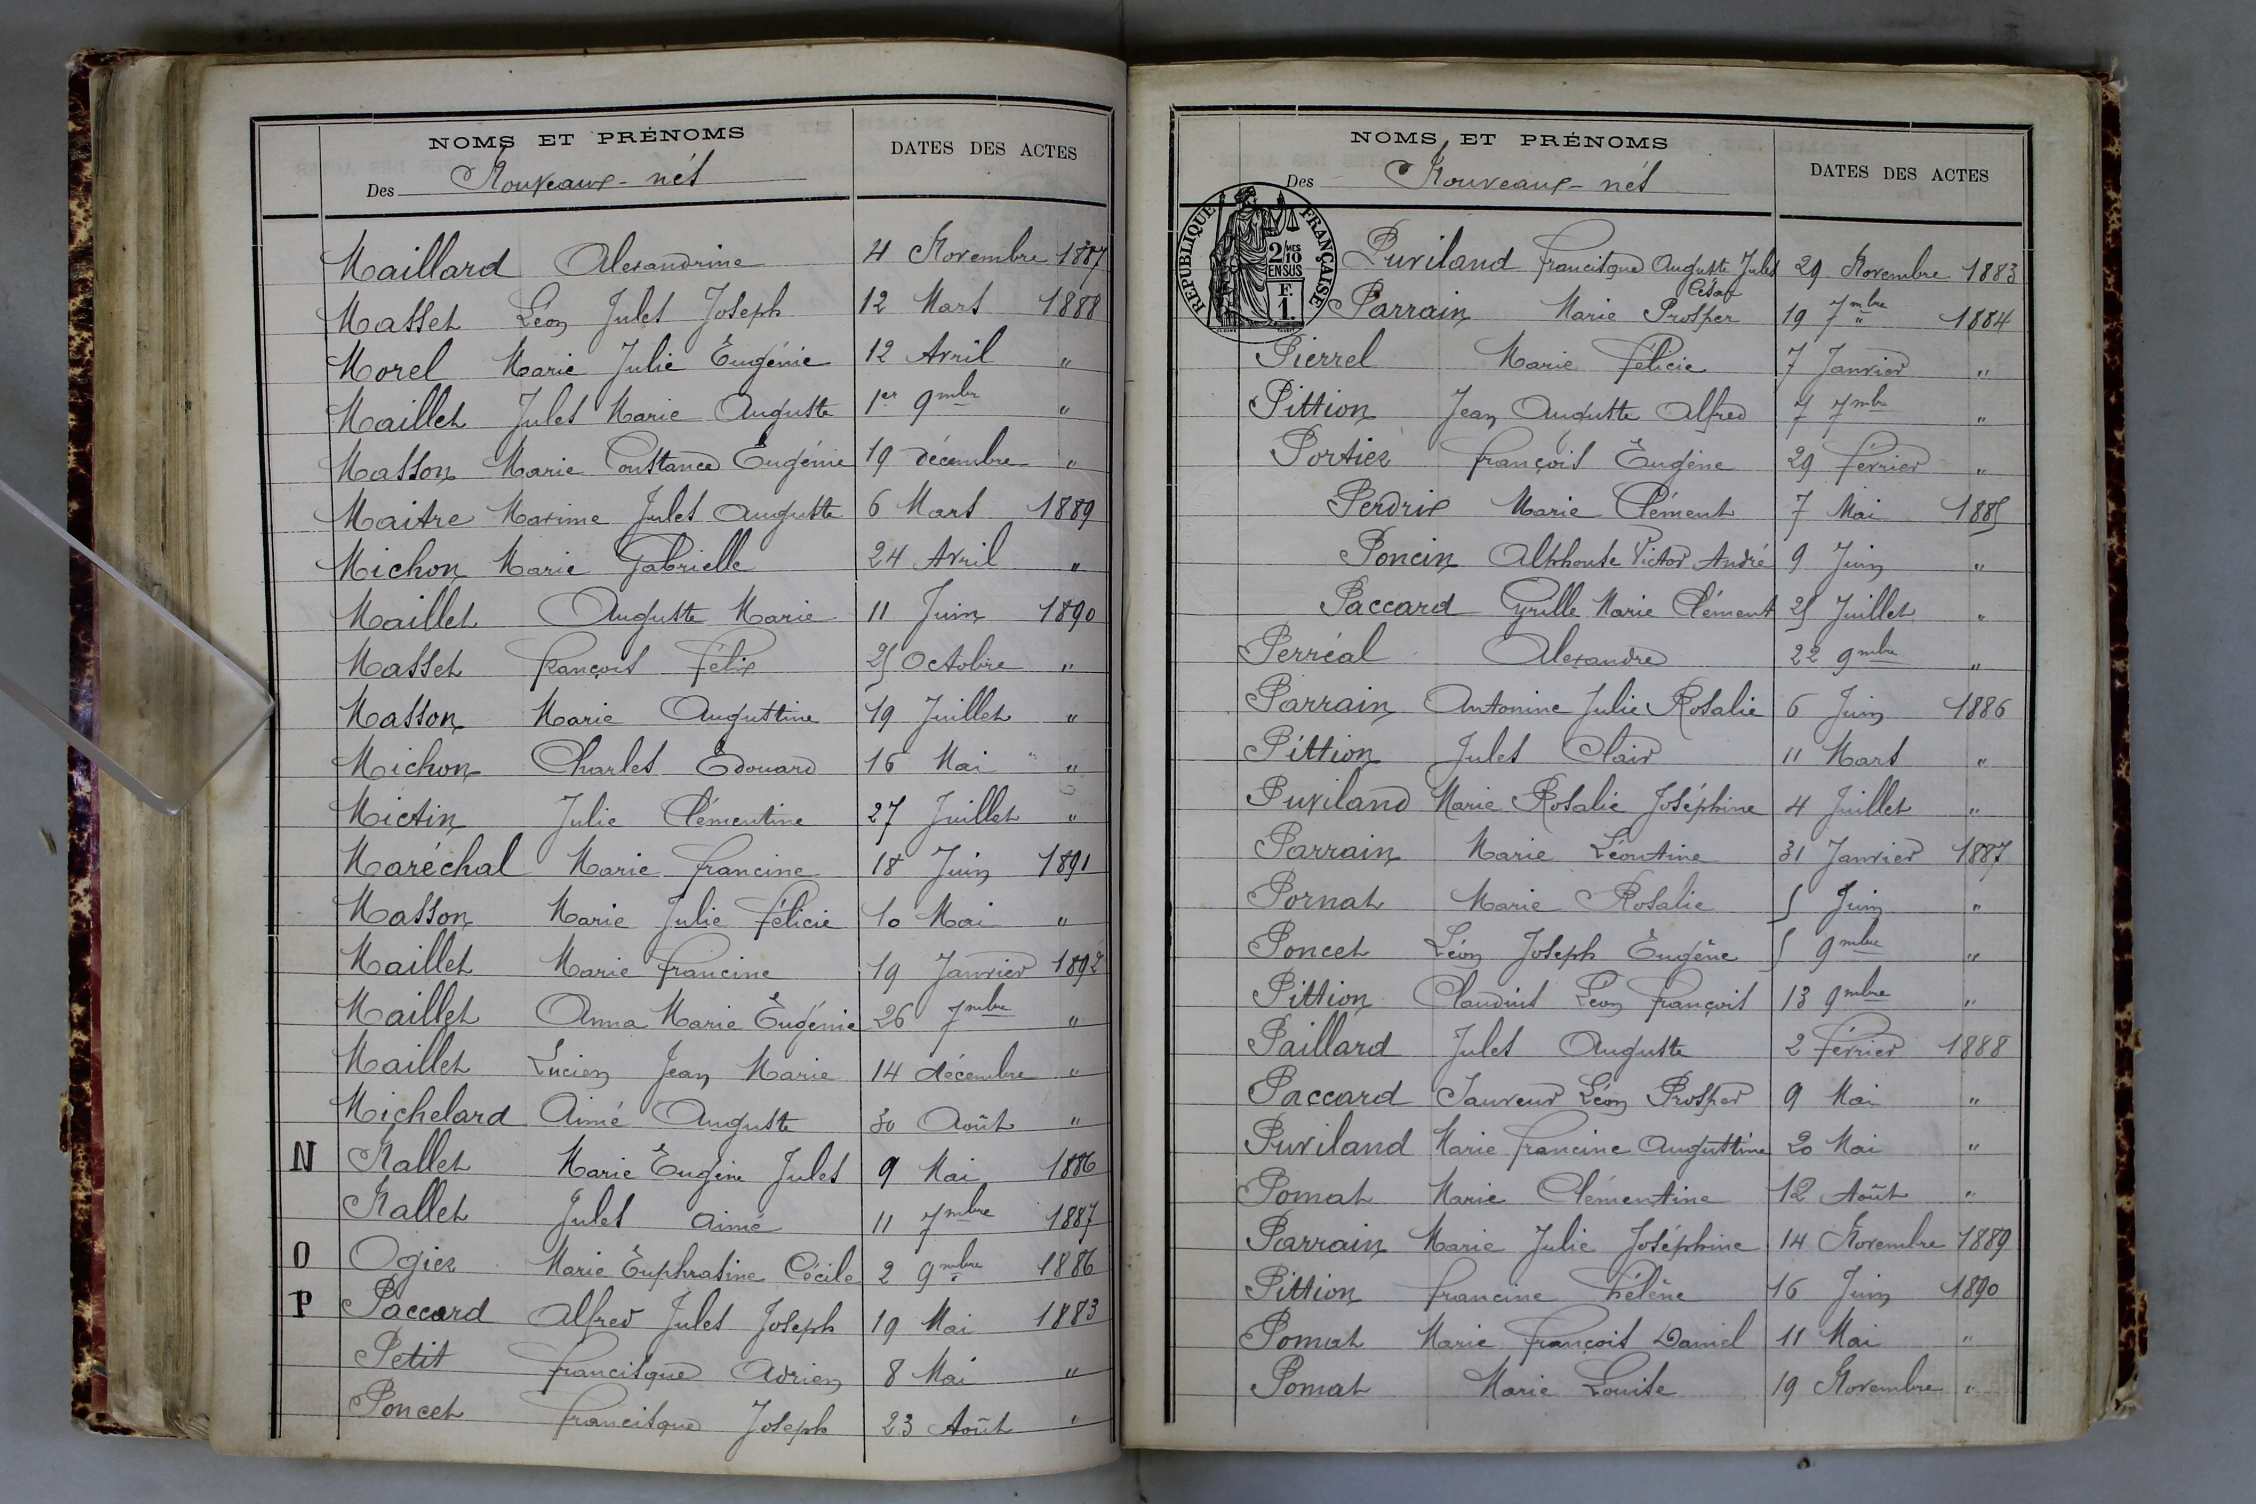 NOMS ET PRÉNOMS
DATES DES ACTES
Des Nouveaux-nés
Maillard Alexandrine 4 Novembre 1887
Masset Léon Jules Joseph 12 Mars 1888
Morel Marie Julie Eugénie 12 Avril "
Maillet Jules Marie Auguste 1er 9mbre "
Masson Marie Constance Eugénie 19 décembre "
Maitre Maxime Jules Auguste 6 Mars 1889
Michon Marie Gabrielle 24 Avril "
Maillet Auguste Marie 11 Juin 1890
Masset François Félix 25 Octobre "
Masson Marie Augustine 19 Juillet "
Michon Charles Edouard 16 Mai "
Mictin Julie Clémentine 27 Juillet "
Maréchal Marie Francine 18 Juin 1891
Masson Marie Julie Félicie 10 Mai "
Maillet Marie Francine 19 Janvier 1892
Maillet Anna Marie Eugénie 26 7mbre "
Maillet Lucien Jean Marie 14 décembre "
Michelard Aimé Auguste 30 Août "
N Nallet Marie Eugène Jules 9 Mai 1886
Nallet Jules Aimé 11 7mbre 1887
O Ogier Marie Euphrasine Cécile 2 9mbre 1886
P Paccard Alfred Jules Joseph 19 Mai 1883
Petit Francisque Adrien 8 Mai "
Poncet Francisque Joseph 23 Août "
NOMS ET PRÉNOMS
DATES DES ACTES
Des Nouveaux-nés
RÉPUBLIQUE FRANÇAISE
2/10 MES
EN SUS
F.
1.
Puviland Francisque Auguste Jules 29 Novembre 1883
César
Parrain Marie Prosper 19 7mbre 1884
Pierrel Marie Félicie 7 Janvier "
Pittion Jean Auguste Alfred 7 7mbre "
Portier François Eugène 29 Février "
Perdrix Marie Clément 7 Mai 1885
Poncin Alphonse Victor André 9 Juin "
Paccard Cyrille Marie Clément 25 Juillet "
Perréal Alexandre 22 9mbre "
Parrain Antonine Julie Rosalie 6 Juin 1886
Pittion Jules Clair 11 Mars "
Puviland Marie Rosalie Joséphine 4 Juillet "
Parrain Marie Léontine 31 Janvier 1887
Pornat Marie Rosalie 5 Juin "
Poncet Léon Joseph Eugène 5 9mbre "
Pittion Claudius Léon François 13 9mbre "
Paillard Jules Auguste 2 Février 1888
Paccard Sauveur Léon Prosper 9 Mai "
Puviland Marie Francine Augustine 20 Mai "
Pomat Marie Clémentine 12 Août "
Parrain Marie Julie Joséphine 14 Novembre 1889
Pittion Francine Hélène 16 Juin 1890
Pomat Marie François Daniel 11 Mai "
Pomat Marie Louise 19 Novembre "